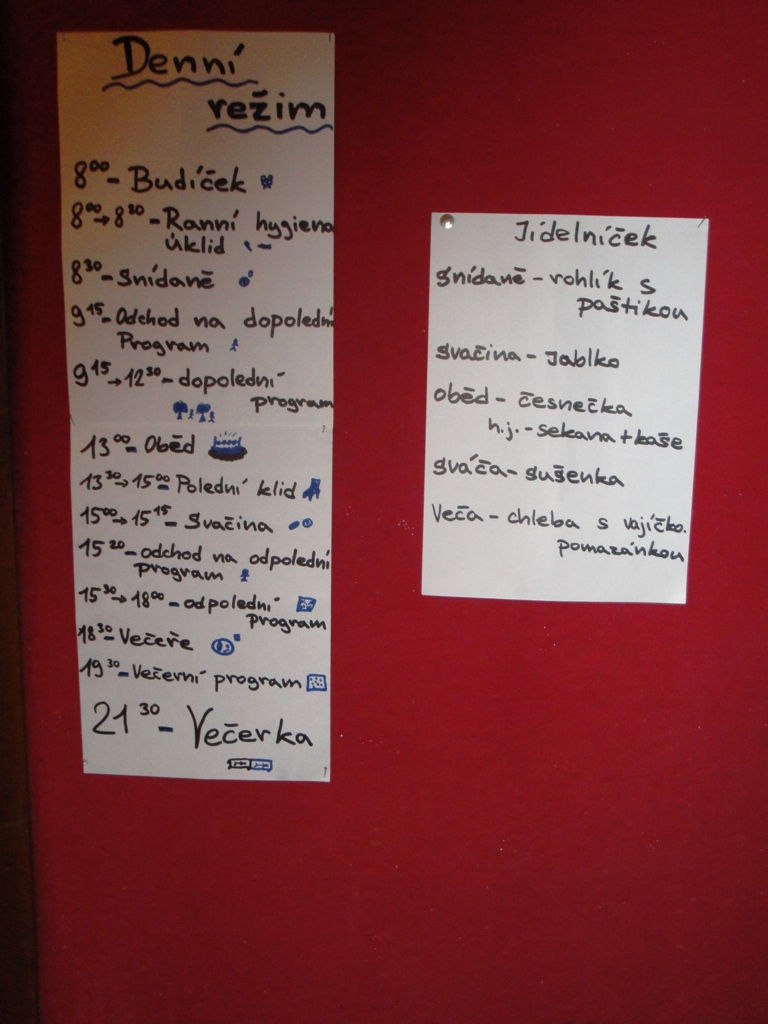 Denní
režim
8⁰⁰- Budíček
8⁰⁰→8³⁰- Ranní hygiena
úklid
8³⁰- Snídaně
9¹⁵- Odchod na dopolední
Program
9¹⁵→12³⁰- dopolední
program
13⁰⁰- Oběd
13³⁰→15⁰⁰ Polední klid
15⁰⁰→15¹⁵- Svačina
15²⁰- odchod na odpolední
program
15³⁰→18⁰⁰- odpolední
program
18³⁰- Večeře
19³⁰- Večerní program
21³⁰- Večerka
Jídelníček
snídaně - rohlík s
paštikou
svačina - Jablko
oběd - česnečka
h.j. - sekana + kaše
sváča - sušenka
Veča - chleba s vajíčko.
pomazánkou